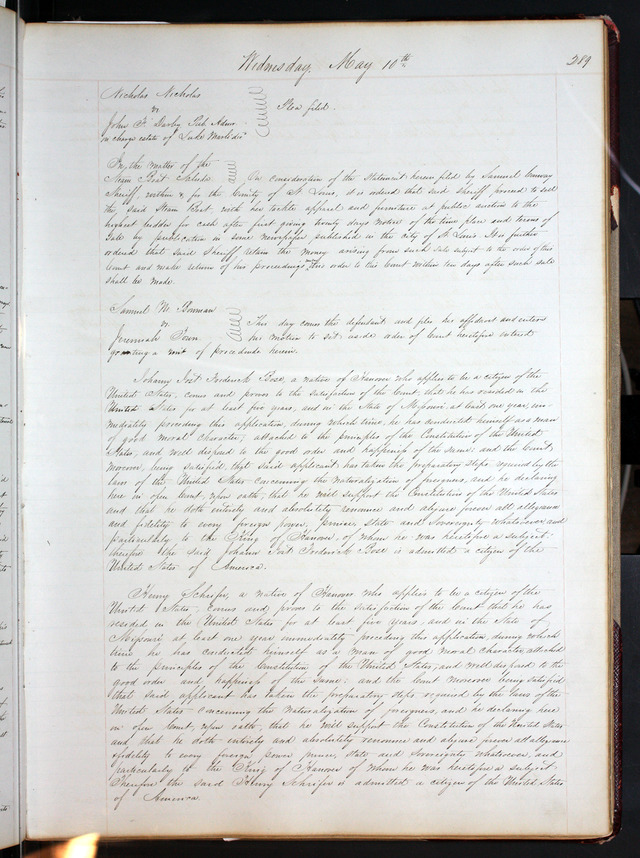 Wednesday, May 10th 289
Nicholas Nicholas
vs
John F Darby Pub Admr
in charge estate of Luke
Plea filed.
In the matter of the
Steam Boat
In consideration of the Statement herein filed by Samuel Conway
Sheriff, within & for the County of St Louis, it is ordered that said sheriff proceed to sell
the said Steam Boat, with her tackle apparel and furniture at public auction to the
highest bidder for cash after first giving twenty days notice of the time place and terms of
Sale by publication in some newspaper published in the city of St Louis. It is further
ordered that said Sheriff, retain the money arising from such sale subject to the order of this
Court and make return of his proceedings this order to this Court within ten days after such sale
shall be made.
Samuel N. Bowman
vs.
Jeremiah
This day comes the defendant and files his affidavit and enters
his motion to set aside order of Court heretofore entered
granting a writ of procedendo herein.
Johann Jost Frederick Bose, a native of Hanover who applies to be a citizen of the
United States, comes and proves to the satisfaction of the Court, that he has resided in the
United States for at least five years, and in the State of Missouri at least one year, im-
mediately preceding this application, during which time, he has conducted himself as a man
of good moral character, attached to the principles of the Constitution of the United
States, and well disposed to the good order and happiness of the same: and the Court
moreover, being satisfied, that said applicant has taken the preparatory steps required by the
laws of the United States concerning the naturalization of foreigners, and he declaring
here in open Court, upon oath, that he will support the Constitution of the United States
and that he doth entirely and absolutely renounce and abjure forever all allegiance
and fidelity to every foreign power, prince, state and Sovereignty whatsoever, and
particularly to the King of Hanover, of whom he was heretofore a subject:
therefore the said Johann Jost Frederick Bose is admitted a citizen of the
United States of America.
Henry Schaifer, a native of Hanover who applies to be a citizen of the
United States, comes and proves to the satisfaction of the Court that he has
resided in the United States for at least five years, and in the State of
Missouri at least one year immediately preceding this application, during which
time he has conducted himself as a man of good moral character, attached
to the principles of the Constitution of the United States, and well disposed to the
good order and happiness of the same: and the Court moreover being satisfied
that said applicant has taken the preparatory steps required by the laws of the
United States concerning the naturalization of foreigners, and he declaring here
in open Court, upon oath, that he will support the Constitution of the United States
and that he doth entirely and absolutely renounce and abjure forever all allegiance
& fidelity to every foreign power, prince, state and Sovereignty whatsoever, and
particularly to the King of Hanover of whom he was heretofore a subject.
Therefore the said Henry Schaifer is admitted a citizen of the United States
of America.